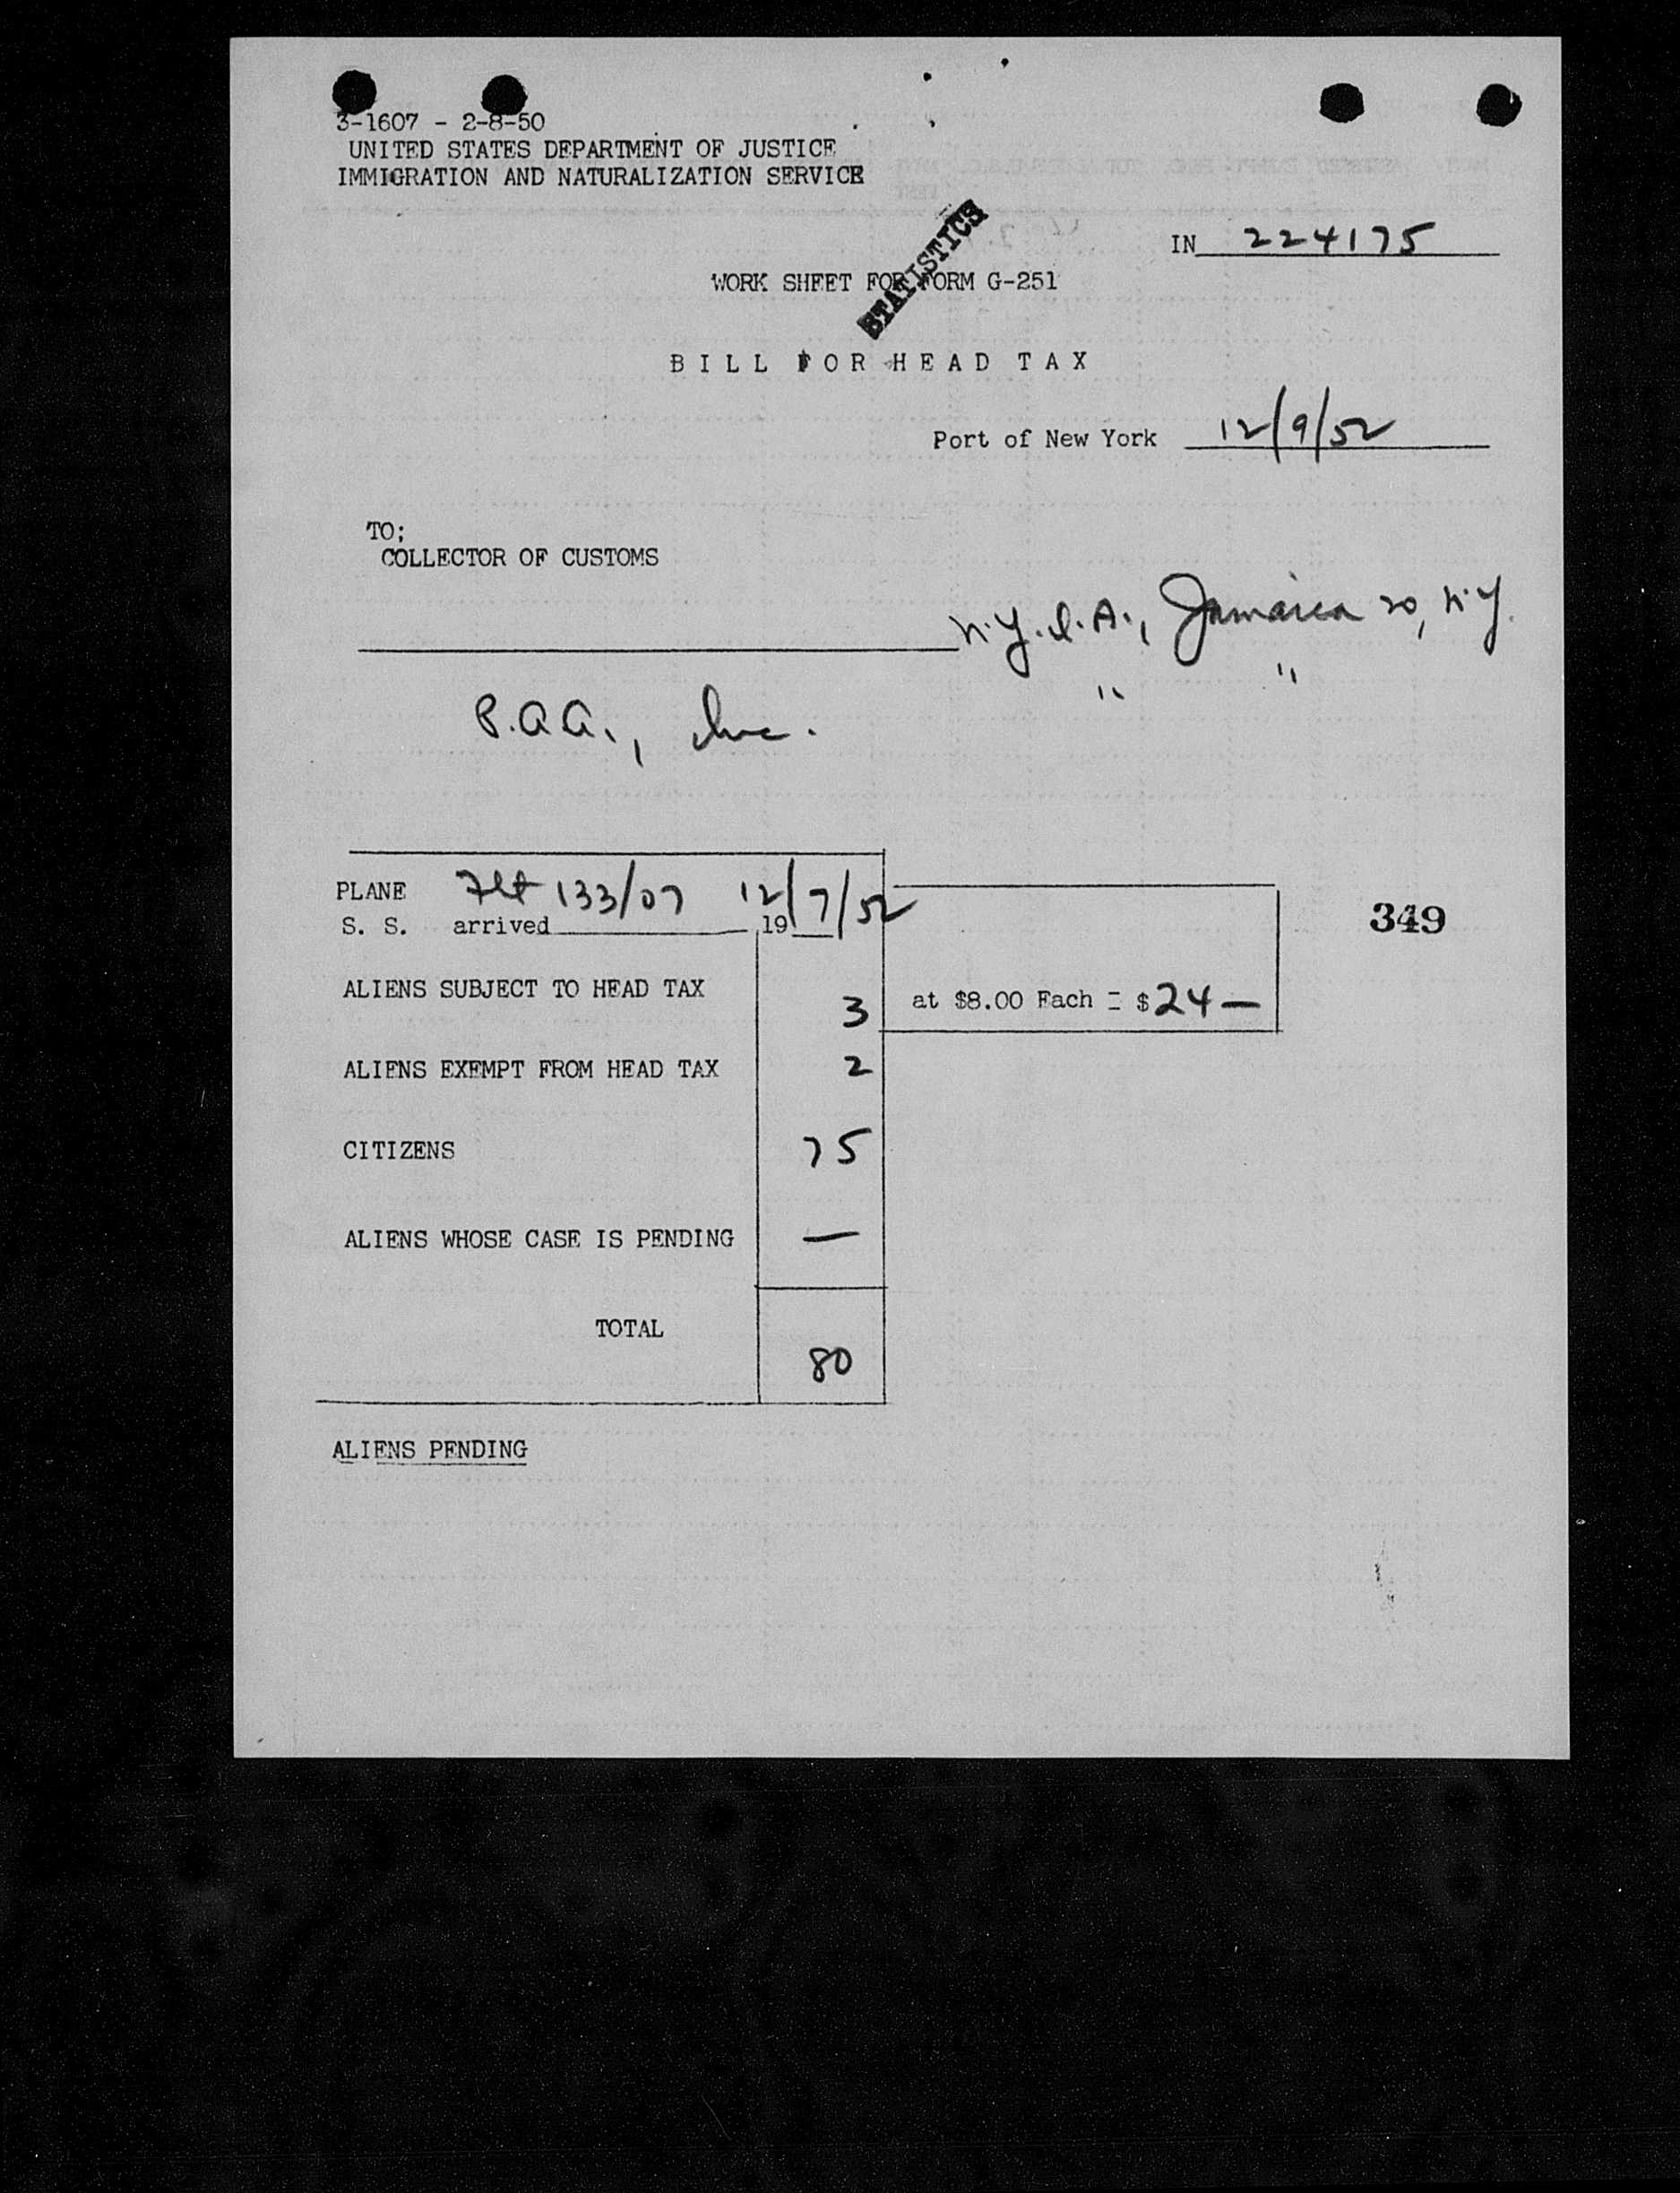 3-1607 - 2-8-50
UNITED STATES DEPARTMENT OF JUSTICE
IMMIGRATION AND NATURALIZATION SERVICE
STATISTICS
IN 224175
WORK SHEET FOR FORM G-251
BILL FOR HEAD TAX
Port of New York 12/9/52
TO;
COLLECTOR OF CUSTOMS
N.Y.I.A., Jamaica 20, N.Y.
" "
P.A.A., Inc.
PLANE Flt 133/07 12/7/52
S. S. arrived 19
349
ALIENS SUBJECT TO HEAD TAX 3 at $8.00 Each = $24 —
ALIENS EXEMPT FROM HEAD TAX 2
CITIZENS 75
ALIENS WHOSE CASE IS PENDING —
TOTAL 80
ALIENS PENDING